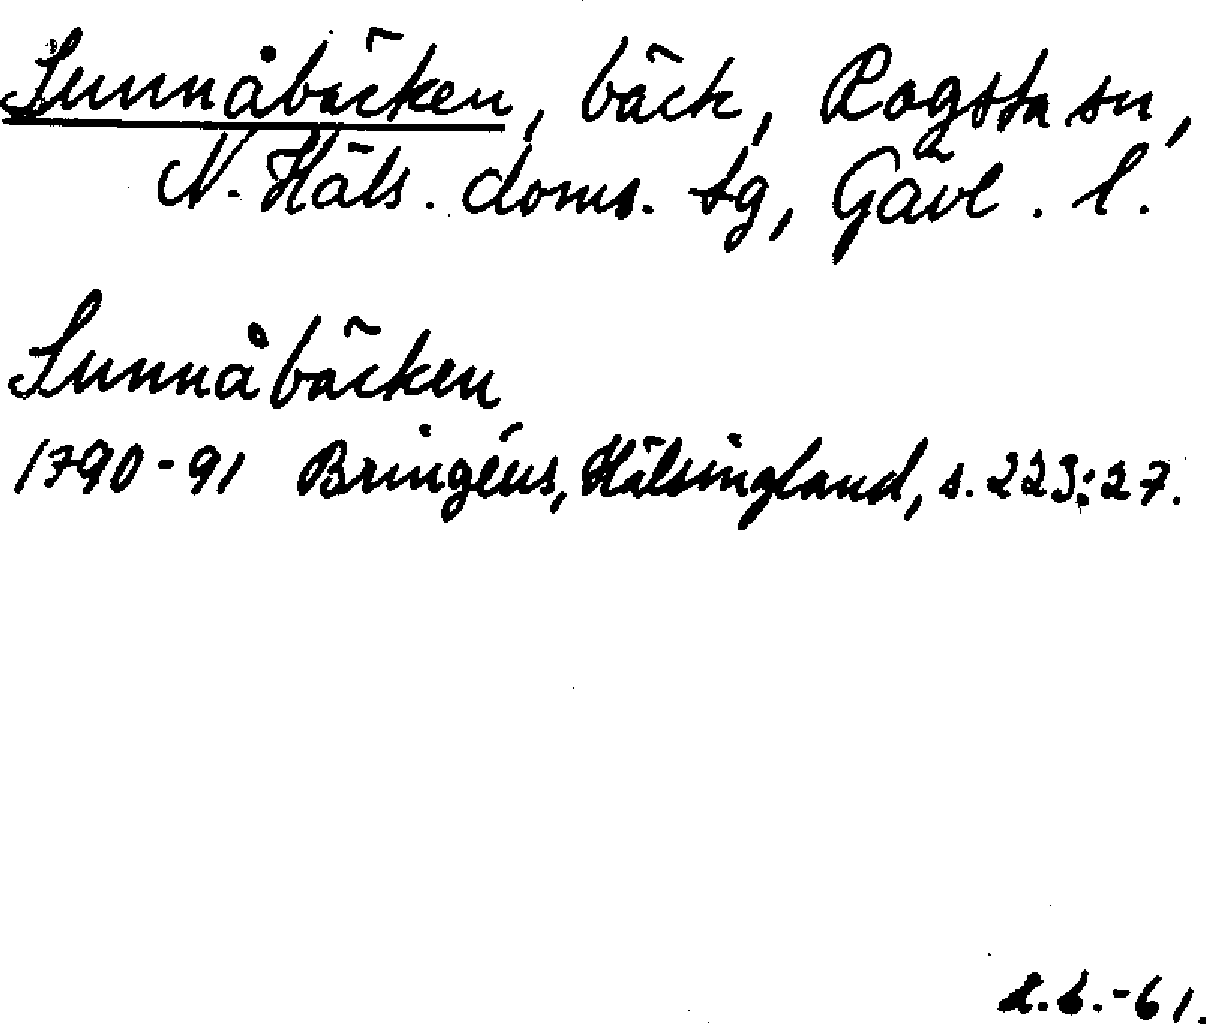 Sunnåbäcken, bäck, Rogsta sn,
N. Häls. doms. tg, Gävl. l.
Sunnåbäcken
1790-91 Bringéus, Hälsingland, s. 223:27.
L.L.-61.